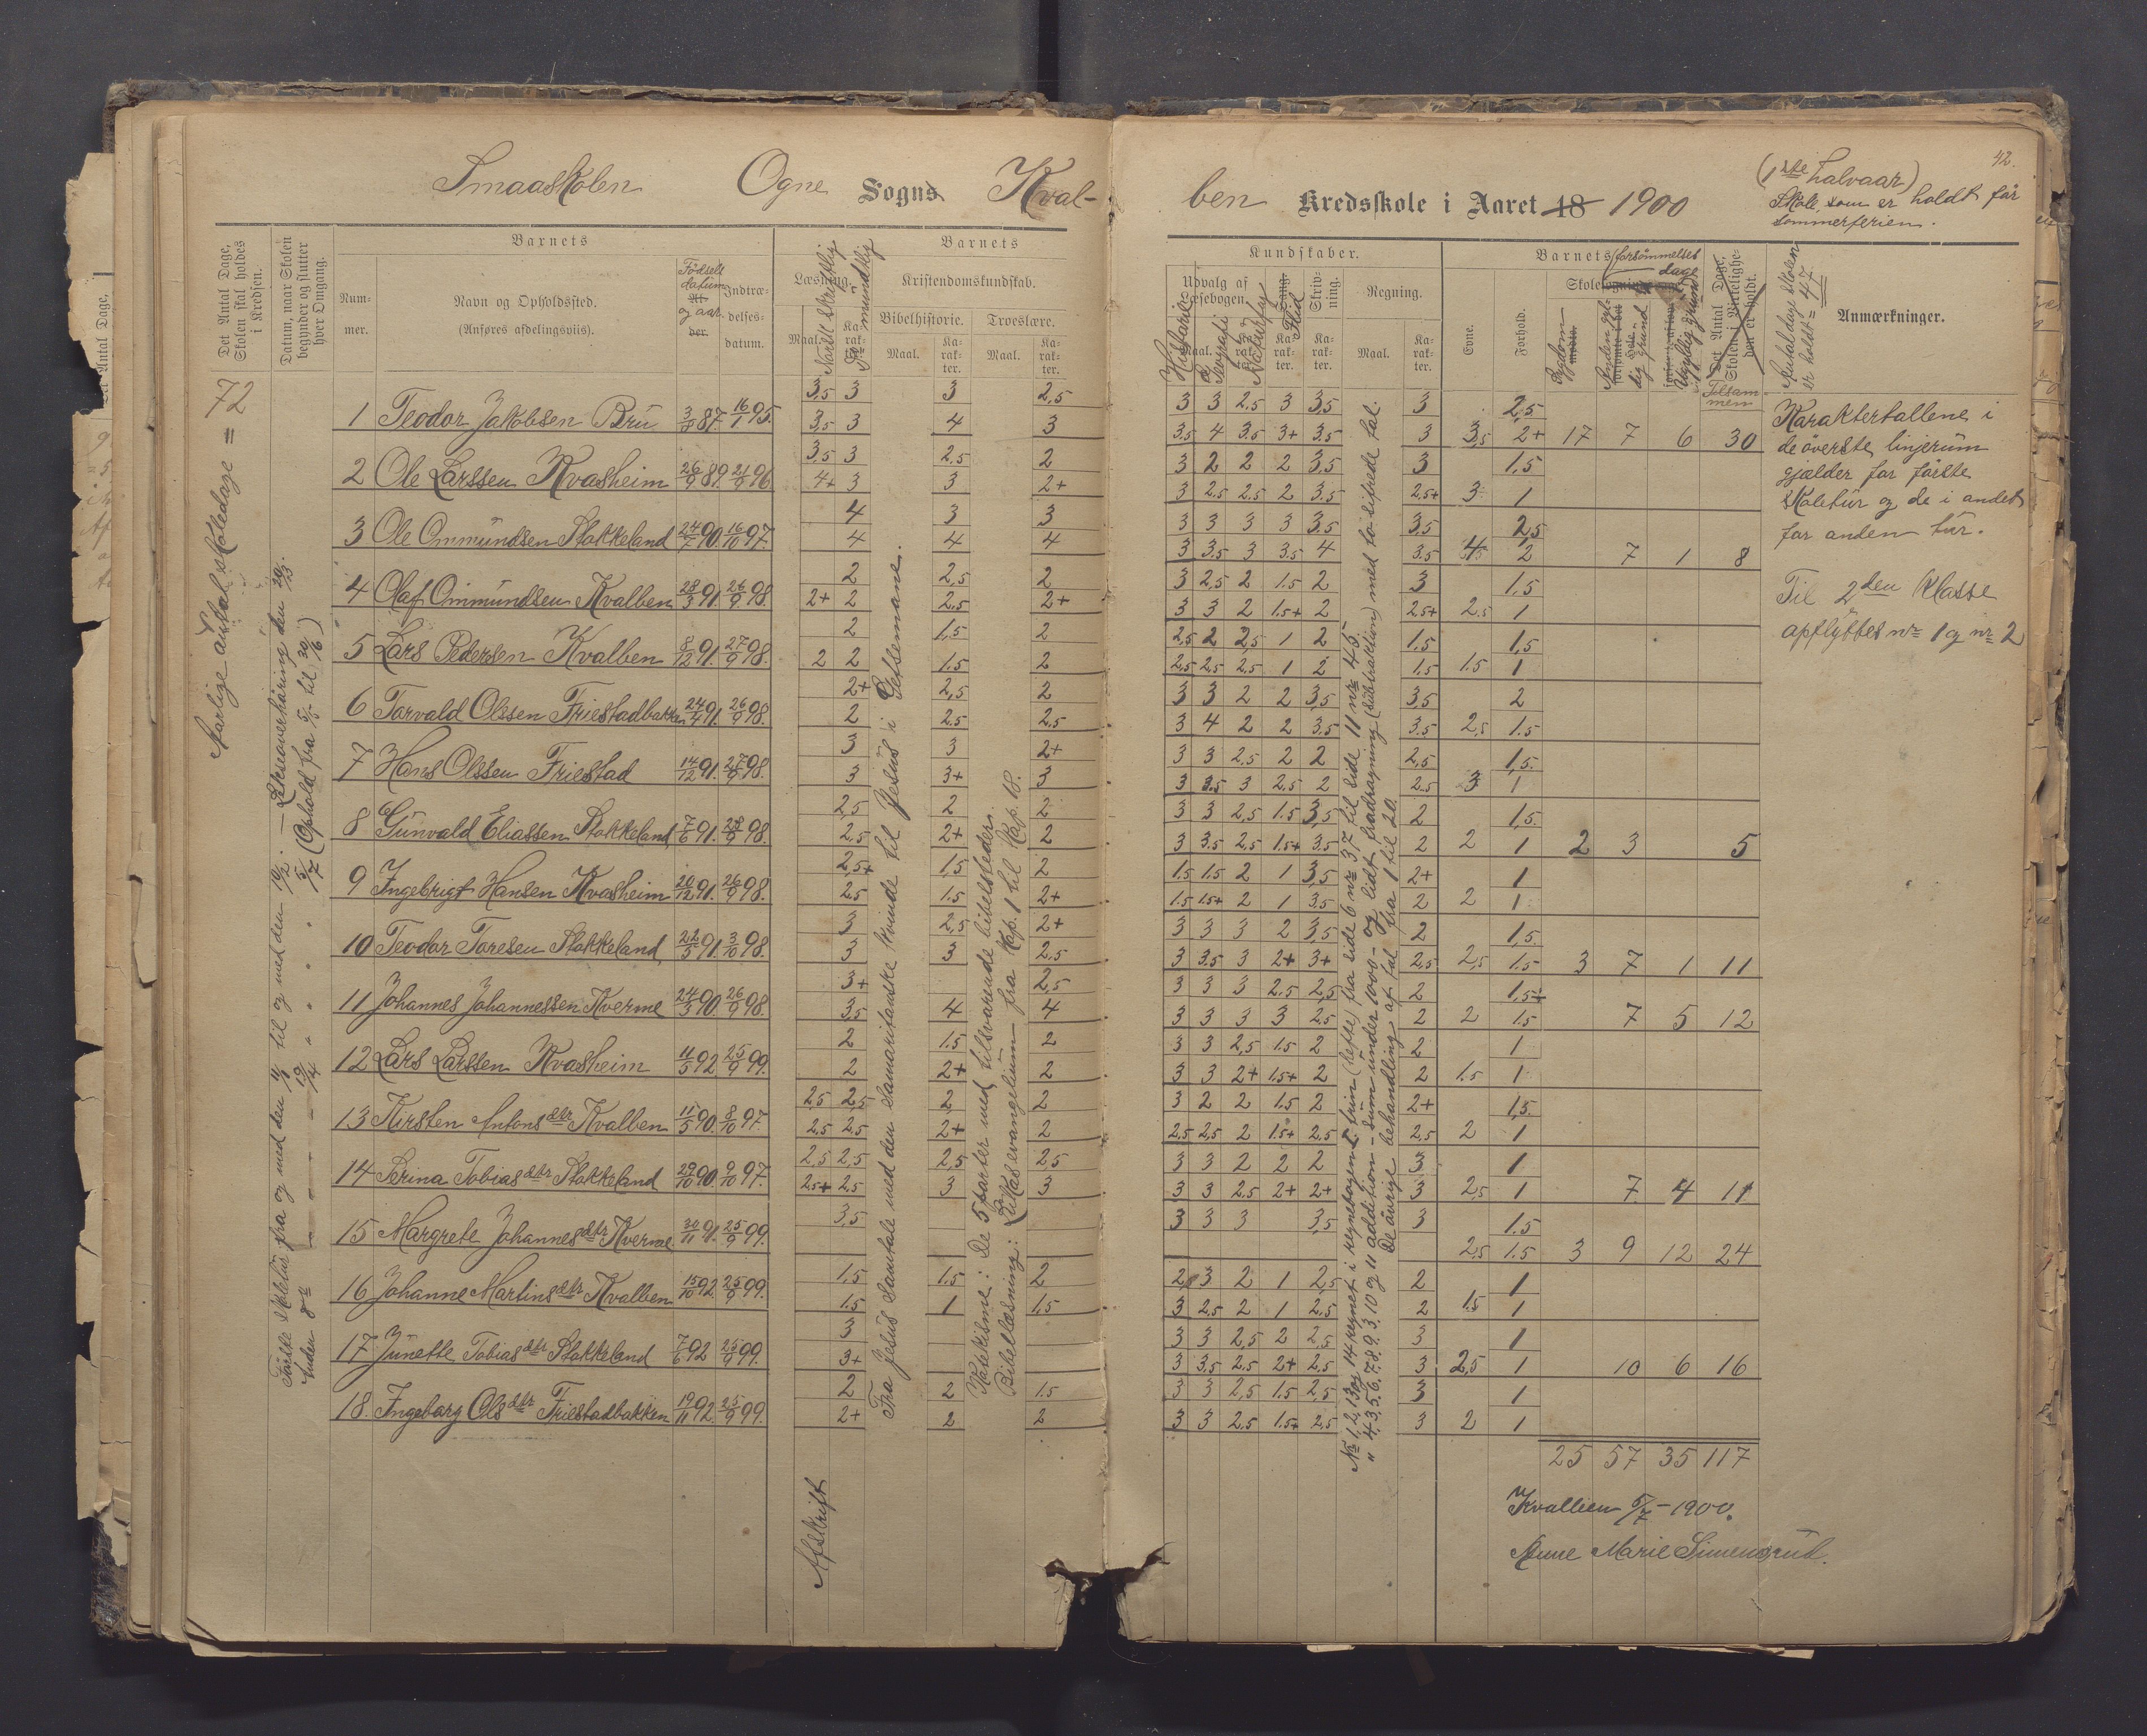 Smaaskolen Ogne Sogns Kval-
ben Kredsskole i Aaret 18 1900
(1ste halvaar)
Skole, som er holdt før
sommerferien.
42.
Det Antal Dage,
Skolen skal holdes
i Kredsen.
Datum, naar Skolen
begynder og slutter
hver Omgang.
Barnets
Num-
mer.
Navn og Opholdssted.
(Anføres afdelingsviis).
Fødsels
datum
og aar.
Indtræ-
delses-
datum.
Barnets
Læsning.
Maal.
Norsk skriftlig
mundtlig
Kristendomskundskab.
Bibelhistorie.
Troeslære.
Maal.
Ka-
rak-
ter.
Maal.
Ka-
rak-
ter.
Kundskaber.
Udvalg af
Læsebogen.
Historie
Geografi
Naturfag
Sang
Flid
Skriv-
ning.
Regning.
Ka-
rak-
ter.
Ka-
rak-
ter.
Maal.
Ka-
rak-
ter.
Barnets forsømmelses
dage
Evne.
Forhold.
Sygdom
Anden gyl-
dig grund
Ugyldig grund
Det Antal Dage,
Skolen i Virkelighe-
den er holdt.
Tilsam-
men
Antal dage skolen
er holdt = 47
Anmærkninger.
Aarlige antal skoledage = 72
1 Teodor Jakobsen Bru 3/8 87. 16/1 95. 3,5 3 3 2,5
3,5 3 4 3
2 Ole Larssen Kvasheim 26/9 89. 21/9 96 3,5 3 2,5 2
4+ 3 3 2+
3 Ole Ommundsen Stokkeland 24/7 90. 16/10 97. 4 3 3
4 4 4
4 Olaf Ommundsen Kvalben 28/3 91. 26/9 98. 2 2,5 2
2+ 2 2,5 2+
5 Lars Pedersen Kvalben 8/12 91. 27/9 98. 2 1,5 2
2 2 1.5 2
6 Torvald Olssen Friestadbakken 24/4 91. 26/9 98. 2+ 2,5 2
2 2.5 2,5
7 Hans Olssen Friestad 14/12 91. 27/9 98. 3 3 2+
3 3+ 3
8 Gunvald Eliassen Stokkeland 7/6 91. 28/9 98. 2,5 2 2
2.5 2+ 2
9 Ingebrigt Hansen Kvasheim 20/12 91. 26/9 98. 2,5+ 1,5 2
2.5 1.5 2+
10 Teodor Toresen Stokkeland 22/5 91. 3/10 98. 3 2,5 2+
3 3 2.5
11 Johannes Johannessen Kverme 24/3 90. 26/9 98. 3+ 2,5
3.5 4 4
12 Lars Larssen Kvasheim 11/5 92 25/9 99. 2 1.5 2
2 2+ 2
13 Kirsten Antonsdtr Kvalben 11/5 90. 8/10 97. 2,5 2,5 2 2
2.5 2.5 2+ 2
14 Serina Tobiasdtr Stokkeland 29/10 90. 9/10 97. 2,5 2,5 2,5 2,5
2,5+ 2.5 3 3
15 Margrete Johannesdtr Kverme 30/11 91. 25/9 99. 3,5
16 Johanne Martinsdtr Kvalben 15/10 92 25/9 99. 1.5 1.5 2
1.5 1 1.5
17 Junette Tobiasdtr Stokkeland 7/6 92 25/9 99. 3
3+
18. Ingeborg Olsdtr Friestadbakken 19/11 92. 25/9 99. 2 2 1.5
2+ 2 2
Fra Jesus Samtale med den Samaritanske kvinde til Jesus i Getsemane.
Katekisme: De 5 parter med tilsvarende bibelsteder.
Bibellæsning: Lukasevangelium fra Kap. 1 til Kap. 18.
Afskrift
3 3 2.5 3 3,5 3 2,5
3.5 4 3.5 3+ 3.5 3 3,5 2+ 17 7 6 30
3 2 2 2 3.5 3 1,5
3 2.5 2.5 2 3.5 2,5+ 3 1
3 3 3 3 3.5 3.5 2,5
3 3.5 3 3.5 4 3.5 4 2 7 1 8
3 2,5 2 1.5 2 3 1.5
3 3 2 1.5+ 2 2.5+ 2.5 1
2,5 2 2,5 1 2 1.5 1,5
2.5 2.5 2.5 1 2 1,5 1.5 1
3 3 2 2 3,5 3,5 2
3 4 2 2 3.5 3.5 2,5 1.5
3 3 2.5 2 2 2,5 1,5
3 3.5 3 2.5 2 2.5 3 1
3 3 2,5 1.5 3,5 2 1,5
3 3.5 2,5 1.5+ 3.5 2 2 1 2 3 5
1.5 1.5 2 1 3,5 2+ 1
1.5 1.5+ 2 1 3.5 2 2 1
3 3 3 2 3,5 2 1,5
3 3.5 3 2+ 3+ 2,5 2,5 1.5 3 7 1 11
3 3 3 2.5 2,5 2 1,5+
3 3 3 3 2.5 2 2 1.5 7 5 12
3 3 2,5 1.5 2 2 1
3 3 2+ 1.5+ 2 2 1.5 1
3 2 2 1.5 2 2+ 1,5
2,5 2,5 2 1.5+ 2.5 2,5 2 1
3 3 2 2 2 3 1
3 3 2.5 2+ 2+ 3 2,5 1 7 4 11
3 3 3 3,5 3 1.5
2,5 1.5 3 9 12 24
2,5 3 2 1 2,5 2 1
3 2,5 2 1 2.5 2 1.5 1
3 3 2,5 2 2,5 3 1
3 3.5 2.5 2+ 2.5 3 2,5 1 10 6 16
3 3 2,5 1.5 2,5 3 1
3 3 2.5 1.5+ 2.5 3 2 1
25 57 35 117
Karaktertallene i
de øverste linjerum
gjælder for første
skoletur og de i andet
for anden tur.
Til 2den klasse
opflyttes nr 1 og nr 2
Kvalben 5/7 - 1900.
Anne Marie Simensrud.